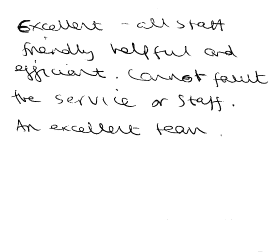 Excellent - all staff
friendly helpful and
efficient. Cannot fault
the service or staff.
An excellent team.